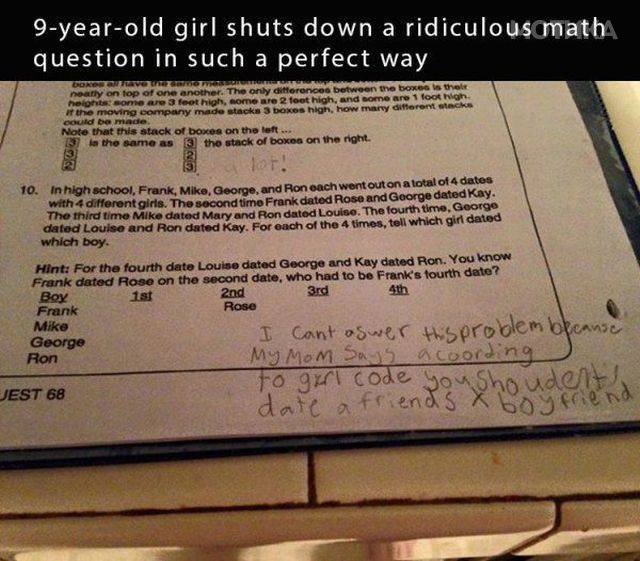 9-year-old girl shuts down a ridiculous math
question in such a perfect way
MOTHKA
boxes all have the same measurements on the top and
neatly on top of one another. The only differences between the boxes is their
heights: some are 3 feet high, some are 2 feet high, and some are 1 foot high.
If the moving company made stacks 3 boxes high, how many different stacks
could be made.
Note that this stack of boxes on the left ...
3 is the same as 3 the stack of boxes on the right.
3 2
2 3
a lot!
10. In high school, Frank, Mike, George, and Ron each went out on a total of 4 dates
with 4 different girls. The second time Frank dated Rose and George dated Kay.
The third time Mike dated Mary and Ron dated Louise. The fourth time, George
dated Louise and Ron dated Kay. For each of the 4 times, tell which girl dated
which boy.
Hint: For the fourth date Louise dated George and Kay dated Ron. You know
Frank dated Rose on the second date, who had to be Frank's fourth date?
Boy 1st 2nd 3rd 4th
Frank Rose
Mike
George
Ron
I cant aswer this problem because
My Mom Says acoording
to girl code you shoudent
date a friends x boyfriend
UEST 68